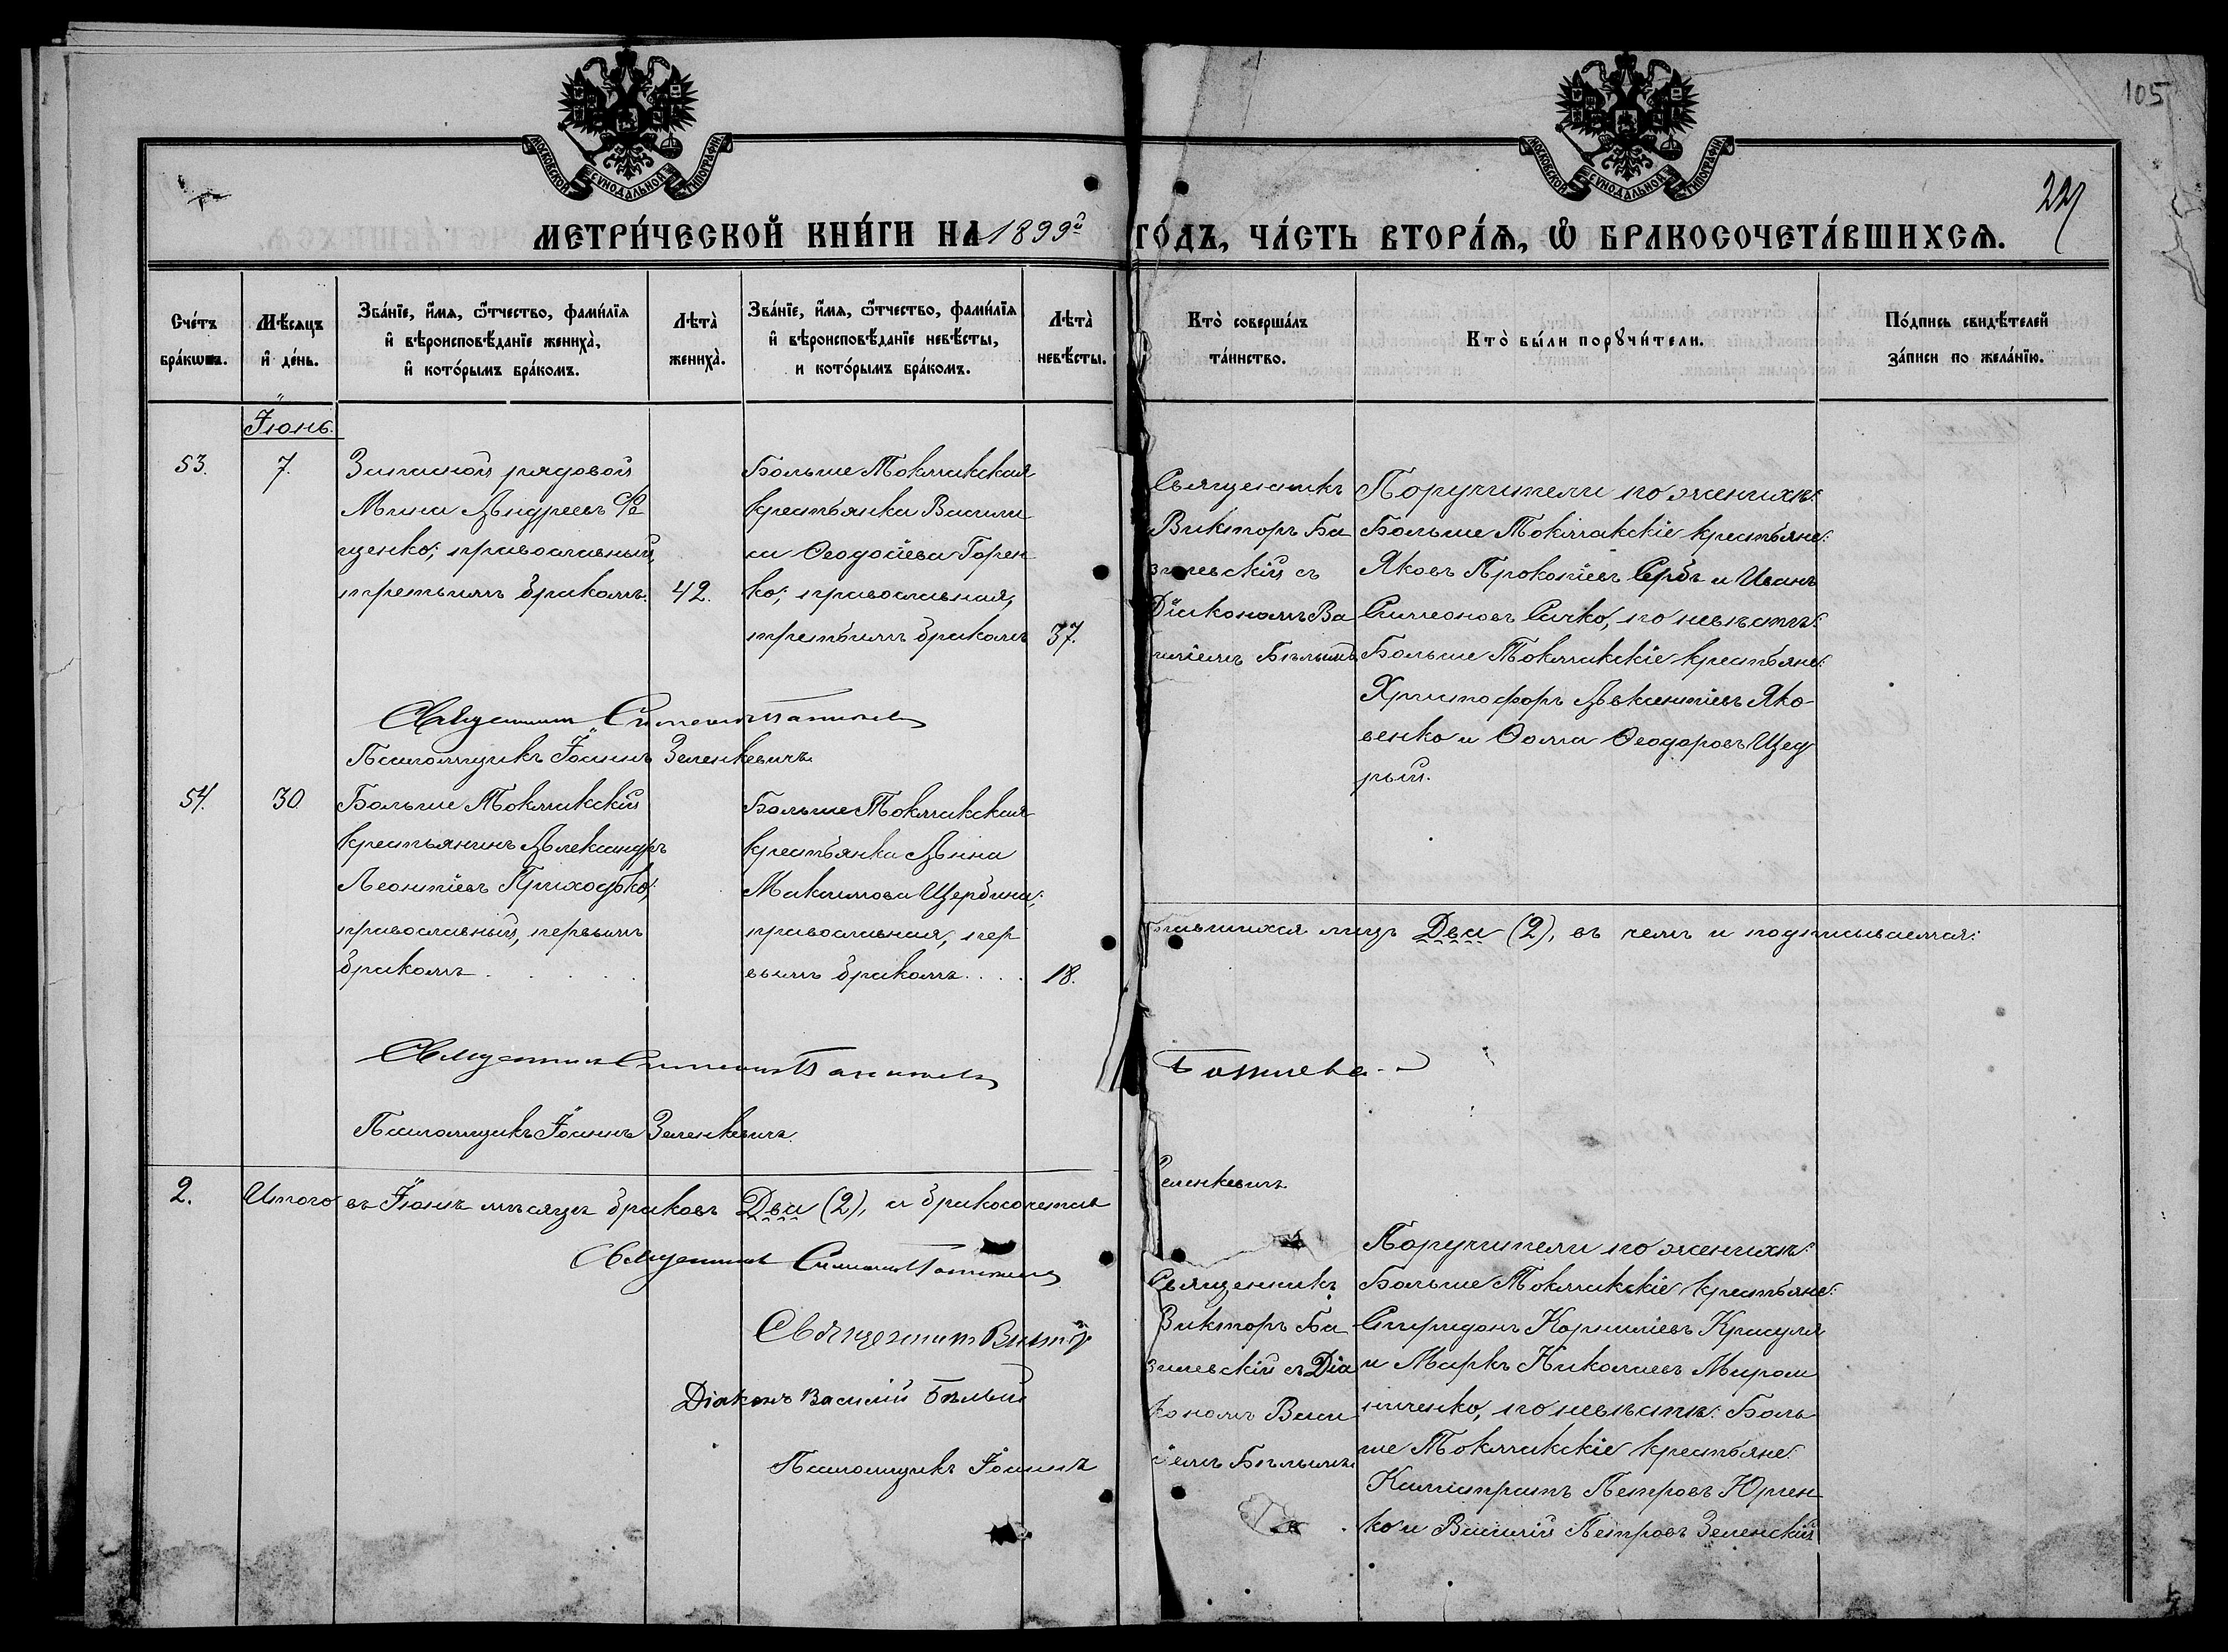 105
МОСКОВСКОЙ СѴНОДАЛЬНОЙ ТИПОГРАФІИ
МОСКОВСКОЙ СѴНОДАЛЬНОЙ ТИПОГРАФІИ
227
МЕТРИ́ЧЕСКОЙ КНИ́ГИ НА 1899й ГО́ДЪ, ЧА́СТЬ ВТОРА́Ѧ, Ѡ҆ БРАКОСОЧЕТА́ВШИХСѦ.
Сче́тъ
бра́кѡвъ.
Мѣ́сѧцъ
и҆ де́нь.
Зва́нїе, и҆́мѧ, ѻ҆́тчество, фами́лїѧ
и҆ вѣроисповѣ́данїе жениха̀,
и҆ кото́рымъ бра́комъ.
Лѣта̀
жениха̀.
Зва́нїе, и҆́мѧ, ѻ҆́тчество, фами́лїѧ
и҆ вѣроисповѣ́данїе невѣ́сты,
и кото́рымъ бра́комъ.
Лѣта̀
невѣ́сты.
Кто̀ соверша́лъ
та́инство.
Кто̀ бы́ли порꙋчи́тели.
По́дпись свидѣ́телей
за́писи по жела́нїю.
Іюнь.
53.
7.
Запасной рядовой
Мина Андреевъ Фе
щенко; православный,
третьимъ бракомъ.
42.
Больше Токмакская
крестьянка Васили
са Ѳеодосіева Горен
ко; православная,
третьимъ бракомъ
37.
Священникъ
Викторъ Ба
зилевскій съ
Діакономъ Ва
силіемъ Бѣлымъ
Поручители по женихѣ:
Больше Токмакскіе крестьяне:
Яковъ Прокопіевъ Сербъ и Иванъ
Симеоновъ Сачко, по невѣстѣ:
Больше Токмакскіе крестьяне:
Христофоръ Авксентіевъ Яко-
венко и Ѳома Ѳеодоровъ Щед
рый.
Священникъ Симеонъ
Псаломщикъ Іоаннъ Зеленкевичъ.
54.
30
Больше Токмакскій
крестьянинъ Александръ
Леонтіевъ Приходько;
православный, первымъ
бракомъ . . . .
Больше Токмакская
крестьянка Анна
Максимова Щербина;
православная, пер
вымъ бракомъ . . . .
18.
Священникъ Симеонъ
Псаломщикъ Іоаннъ Зеленкевичъ.
2.
Итого въ Іюнѣ мѣсяцѣ браковъ Два (2), а бракосочетав
шихся лицъ Два (2), въ чемъ и подписываемся:
Священникъ Симеонъ
Священникъ Викторъ
Діаконъ Василій Бѣлый
Псаломщикъ Іоаннъ
Зеленкевичъ
Священникъ
Викторъ Ба
зилевскій съ Діа
кономъ Васи
ліемъ Бѣлымъ
Поручители по женихѣ:
Больше Токмакскіе крестьяне:
Спиридонъ Корниліевъ Красуля
и Маркъ Николаевъ Мирош
ниченко, по невѣстѣ: Боль
ше Токмакскіе крестьяне:
Каллистратъ Петровъ Юрчен
ко и Василій Петровъ Зеленскій